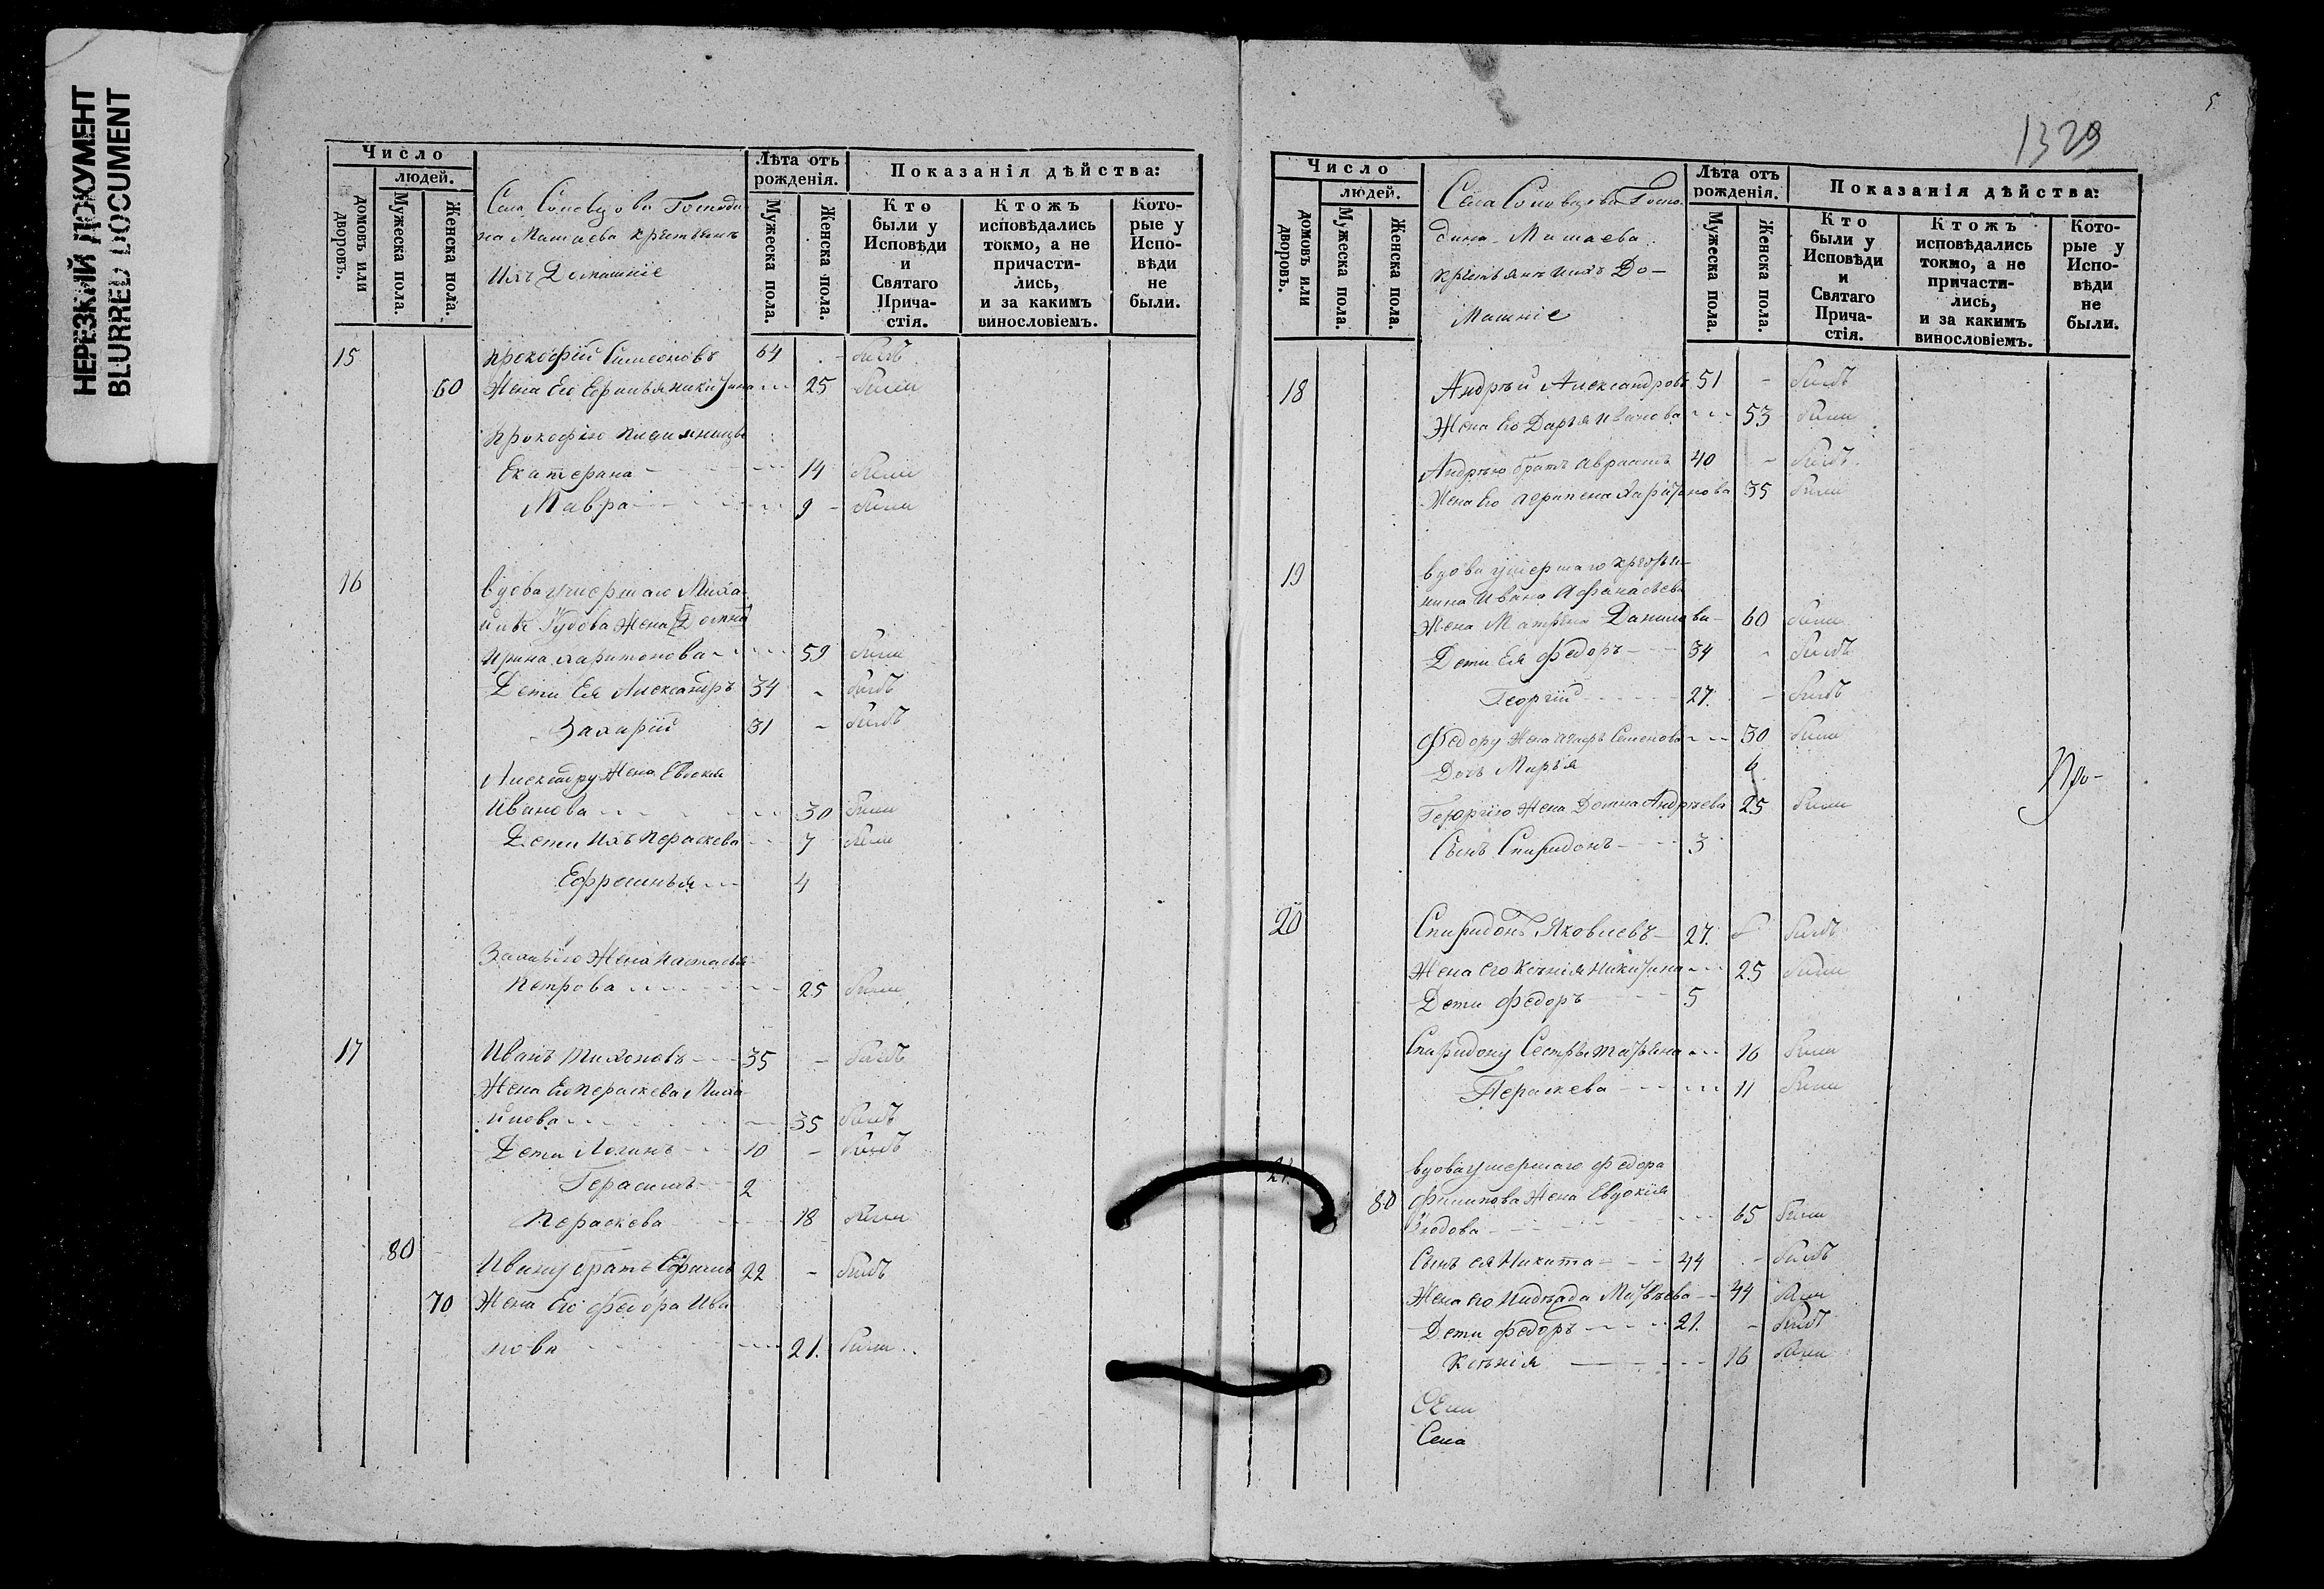 НЕРЕЗКИЙ ДОКУМЕНТ
BLURRED DOCUMENT
Число
людей.
домовъ или дворовъ.
Мужеска пола.
Женска пола.
Села Соловцова Господи
на Машаева крестьянъ
ихъ Домашніе
Лѣта отъ рожденія.
Мужеска пола.
Женска пола.
Показанія дѣйства:
Кто были у Исповѣди и Святаго Прича-стія.
Ктожъ исповѣдались токмо, а не причасти-лись, и за какимъ винословіемъ.
Кото-рые у Испо-вѣди не были.
15 Прокофій Симеоновъ 64 - былъ
60 Жена Его Ефимья Никитина 25 была
Прокофію
Екатерина 14 была
Мавра 9 - была
16 Вдова умершаго Миха
Жена Домна
Ирина Харитонова 59 была
Дети Ея Александръ 34 - былъ
Захарій 31 - былъ
Александру Жена Евдокія
Иванова 30 была
Дети Ихъ Пераскева 7 была
Ефросинья 4
Захарію Жена Настасья
Петрова 25 была
17 Иванъ Тихоновъ 35 - былъ
Жена Его Пераскева Миха
йлова 35 былъ
Дети Логинъ 10 - былъ
Герасимъ 2
Пераскева 18 была
80 Ивану братъ Ефимъ 22 - былъ
70 Жена Его Федора Ива
нова 21. была
5
1329
Число
людей.
домовъ или дворовъ.
Мужеска пола.
Женска пола.
Села Соловцова Госпо
дина Машаева
крестьянъ ихъ До-
Машніе
Лѣта отъ рожденія.
Мужеска пола.
Женска пола.
Показанія дѣйства:
Кто были у Исповѣди и Святаго Прича-стія.
Ктожъ исповѣдались токмо, а не причасти-лись, и за какимъ винословіемъ.
Кото-рые у Испо-вѣди не были.
18 Андрѣй Александровъ 51 - былъ
Жена Его Дарья Иванова 53 была
Андрѣю братъ Авраамъ 40 - былъ
Жена Его Агрипена Харитонова 35 была
19 вдова умершаго кресть
нина Ивана Афанасьева
Жена Матрена Данилова 60 была
Дети Ея Федоръ 34 - былъ
Георгій 27. - былъ
Федору Жена Семенова 30 была
Дочь Марья 6
Георгію Жена Домна Андрѣева 25 была
Сынъ Спиридонъ 3
20 Спиридонъ Яковлевъ 27. былъ
Жена его Ксенія Никитина 25 была
Дети Федоръ 5
Спиридону Сестры Татьяна 16 была
Пераскева 11 была
21. вдова умершаго Федора
80 Филипова Жена Евдокія
65 была
Сынъ ея Никита 44 - былъ
Жена его Надежда Матвѣева 44 была
Дети Федоръ 21. - былъ
Ксенія 16 была
Села